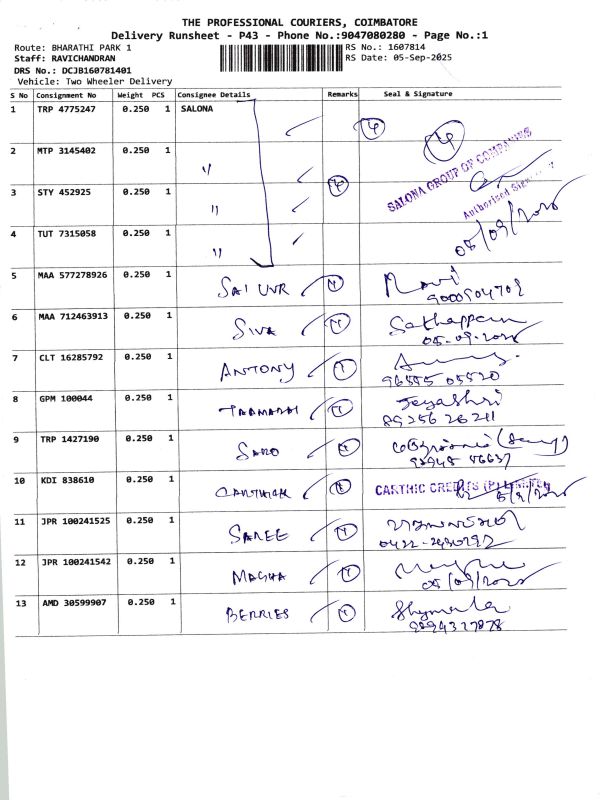 THE PROFESSIONAL COURIERS, COIMBATORE
Delivery Runsheet - P43 - Phone No.:9047080280 - Page No.:1
Route: BHARATHI PARK 1 RS No.: 1607814
Staff: RAVICHANDRAN RS Date: 05-Sep-2025
DRS No.: DCJB160781401
Vehicle: Two Wheeler Delivery
S No Consignment No Weight PCS Consignee Details Remarks Seal & Signature
1 TRP 4775247 0.250 1 SALONA 4 4
2 MTP 3145402 0.250 1 " SALONA GROUP OF COMPANIES
3 STY 452925 0.250 1 " 4 Authorised
4 TUT 7315058 0.250 1 " 05/09/2025
5 MAA 577278926 0.250 1 SAI UVR Ravi
6 MAA 712463913 0.250 1 SIVA Sathappan
05-09-2025
7 CLT 16285792 0.250 1 ANTONY
96555 05520
8 GPM 100044 0.250 1 Jeyashri
89256 26211
9 TRP 1427190 0.250 1 SARO
98948 46637
10 KDI 838610 0.250 1 CARTHIC CREDITS (P) LIMITED
11 JPR 100241525 0.250 1 SAREE
12 JPR 100241542 0.250 1 MAGHA
05/09/2025
13 AMD 30599907 0.250 1 BERRIES Shymala
9894327878